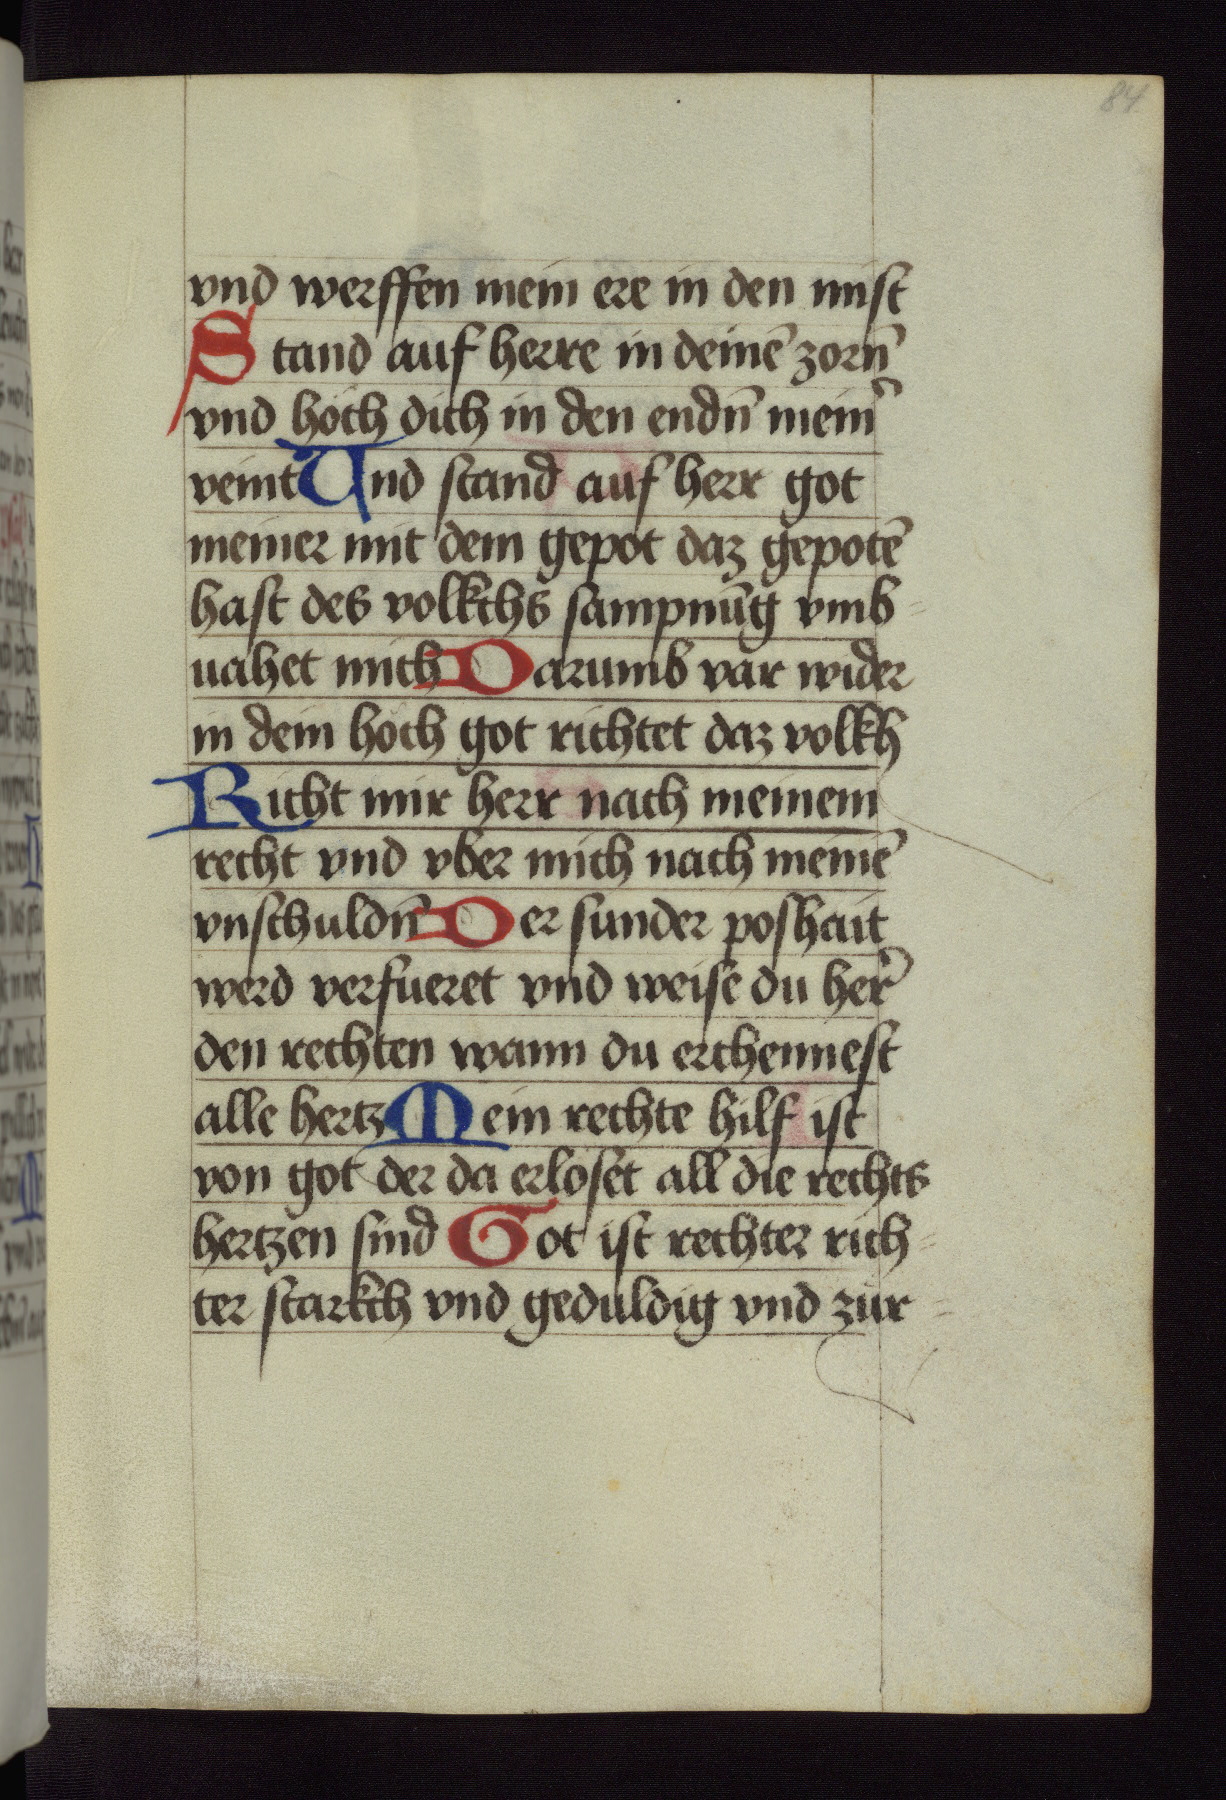 84
vnd werffen mein ere in den mist
Stand auf herre in deinē zorn̄
vnd höch dich in den endn̄ mein̾
veint Und stand auf herr got
meiner mit dem gepot daz gepotē
hast des volkchs sampnūg vmb-
uahet mich Darumb var wider
in dein höch got richtet daz volkh
Richt mir herr nach meinem
recht vnd vber mich nach meinē
vnschuldn̄ Der sunder poshait
werd verfueret vnd weise du her̾
den rechten wann du erchennest
alle hertz Mein rechte hilf ist
von got der da erlöset all die rechts
hertzen sind Got ist rechter rich-
ter starkch vnd geduldig vnd zür-